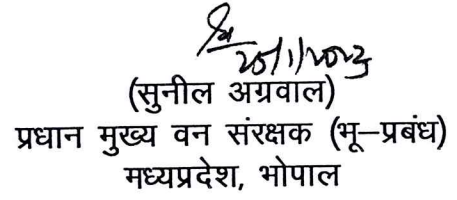 25/1/2023
(सुनील अग्रवाल)
प्रधान मुख्य वन संरक्षक (भू–प्रबंध)
मध्यप्रदेश, भोपाल